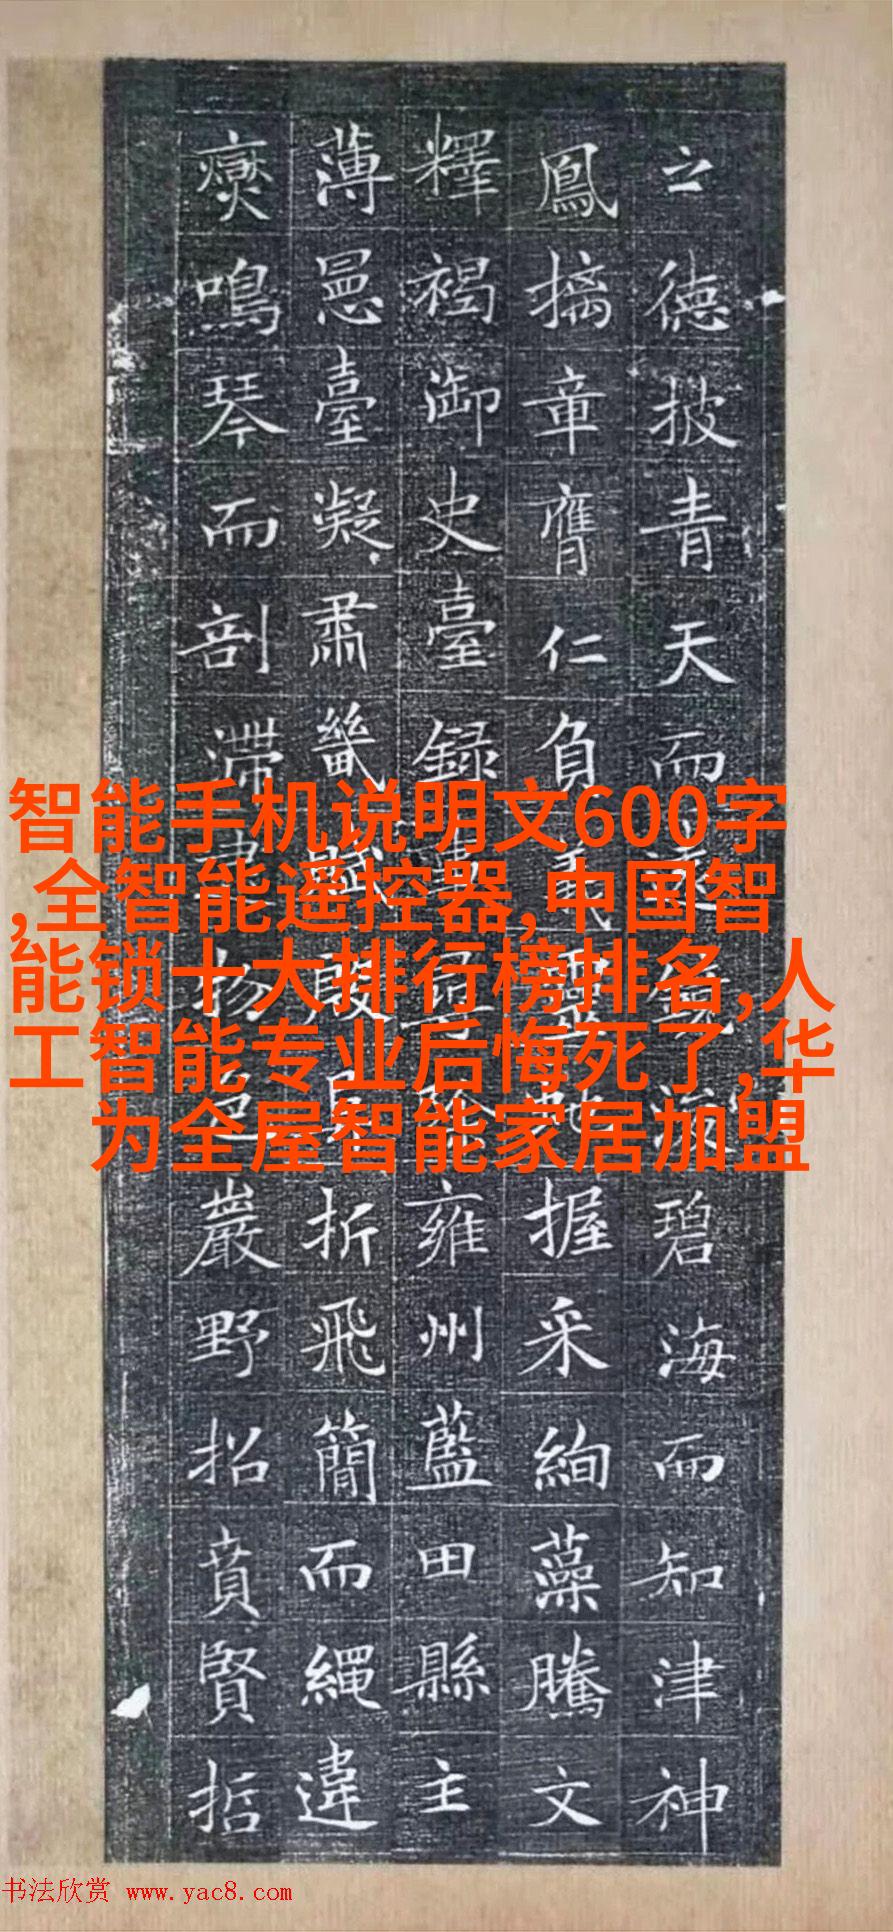 之德披青天而碧海而知津神
鳳摛章膺仁負義靈虵握采絢藻騰文
釋褐御史臺録事尋除雍州藍田縣主
薄臺凝肅畿殷折飛簡而繩違
鳴琴而剖滯物色巖野招賁賢哲
智能手机说明文600字
,全智能遥控器,中国智
能锁十大排行榜排名,人
工智能专业后悔死了,华
为全屋智能家居加盟
书法欣赏 www.yac8.com